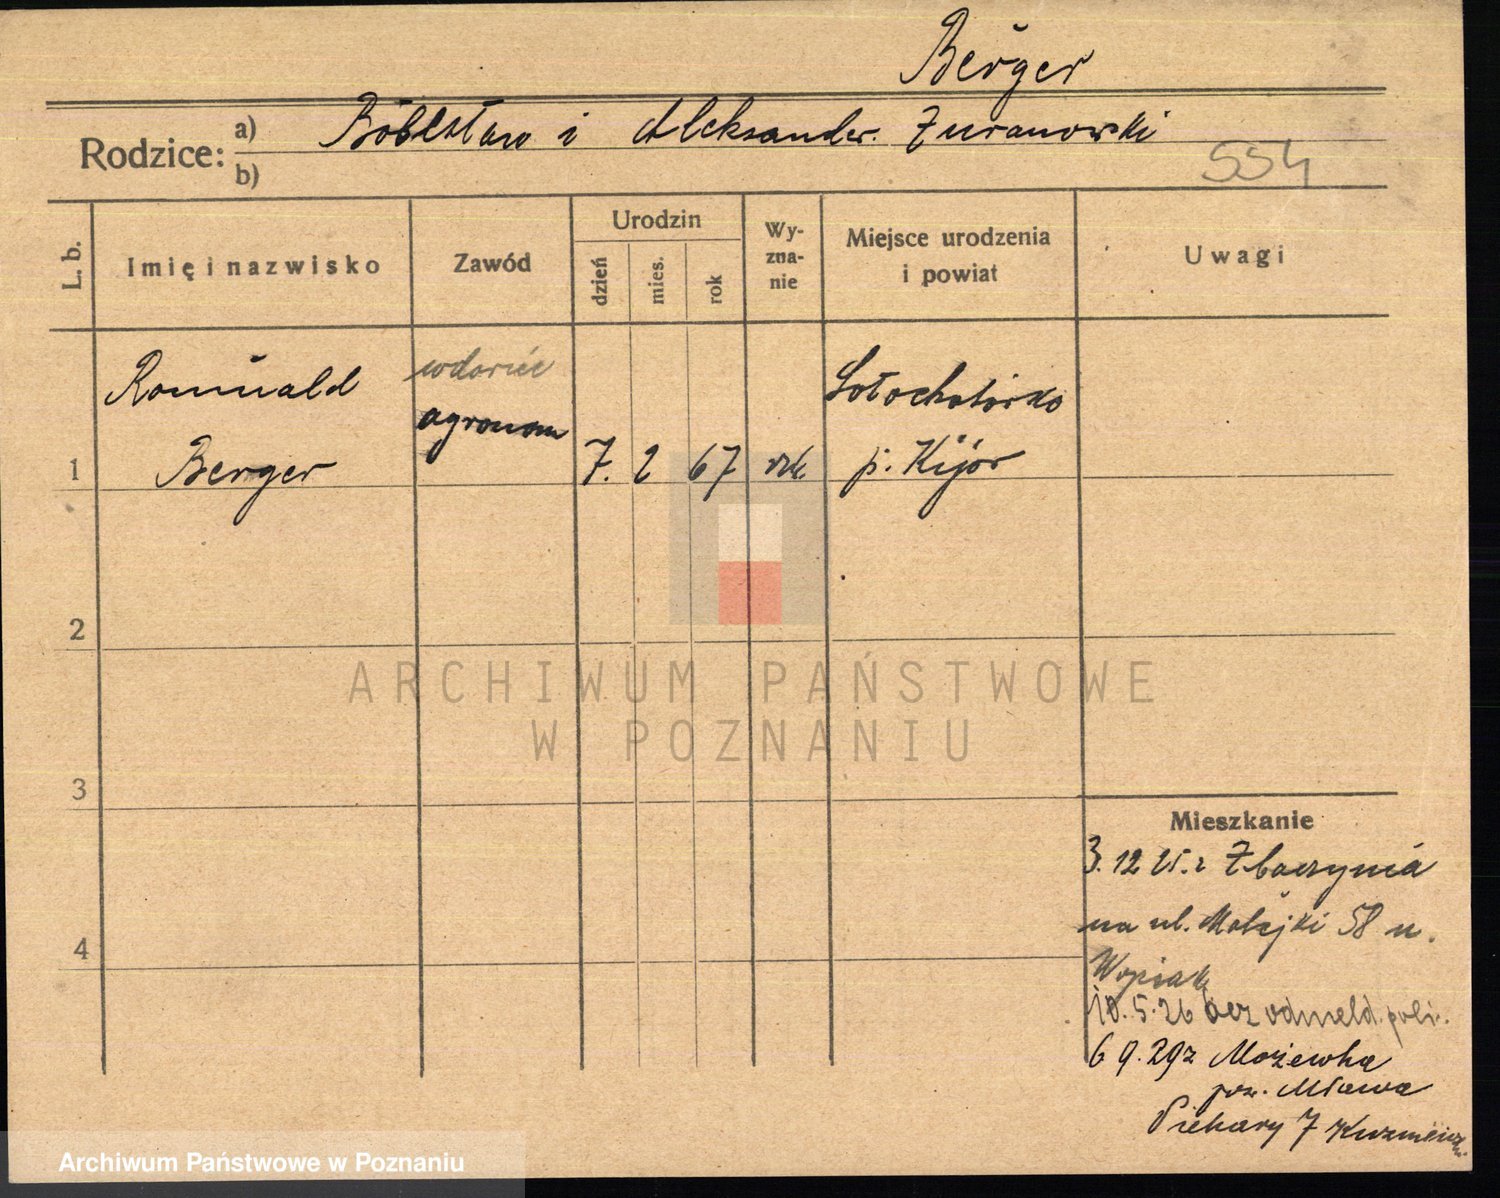 Berger
Rodzice: a) Bolesław i Aleksandr. Żuranowski
b)
554
L. b.
Imię i nazwisko
Zawód
Urodzin
dzień
mies.
rok
Wy-
zna-
nie
Miejsce urodzenia
i powiat
Uwagi
Romuald
agronom
1 Berger 7. 2 67 rzk. p. Kijów
2
3
4
Mieszkanie
3. 12 25. z Zbąszynia
na ul. Matejki 58 u.
Wopiak
10. 5. 26 bez odmeld. poli.
6 9. 29 z Możewka
pow. Mława
Piekary 7
ARCHIWUM PAŃSTWOWE
W POZNANIU
Archiwum Państwowe w Poznaniu